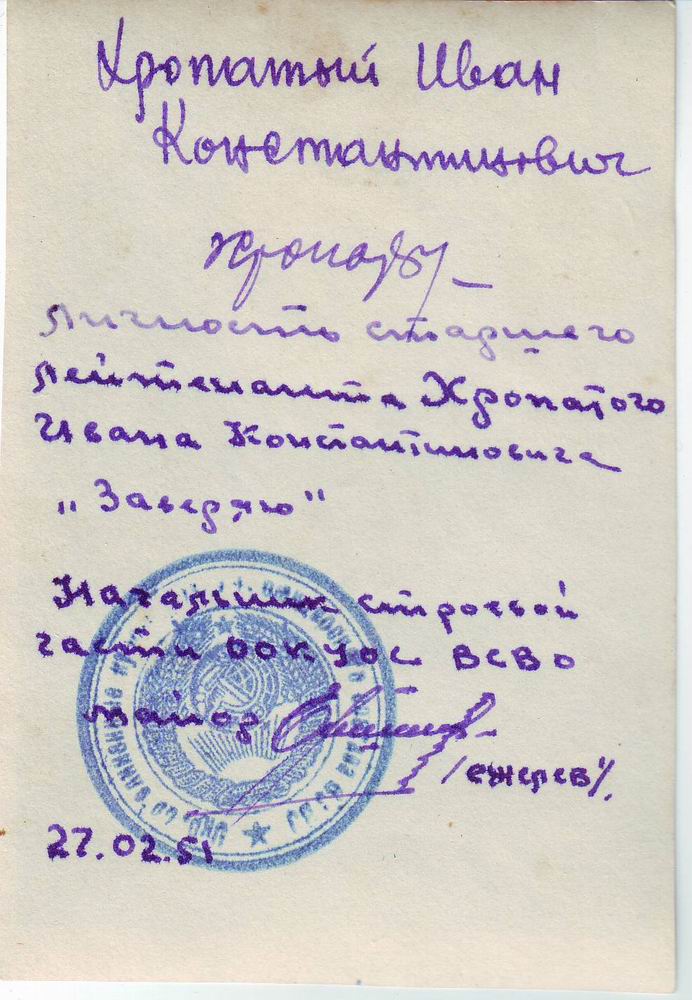 Хропатый Иван
Константинович
Личность старшего
лейтенанта Хропатого
Ивана Константиновича
„Заверяю"
Начальник строевой
части ООКУОС ВСВО
майор
/Ежерев/.
27.02.51